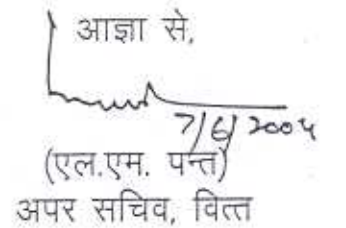 आज्ञा से,
7/6/2004
(एल.एम. पन्त)
अपर सचिव, वित्त